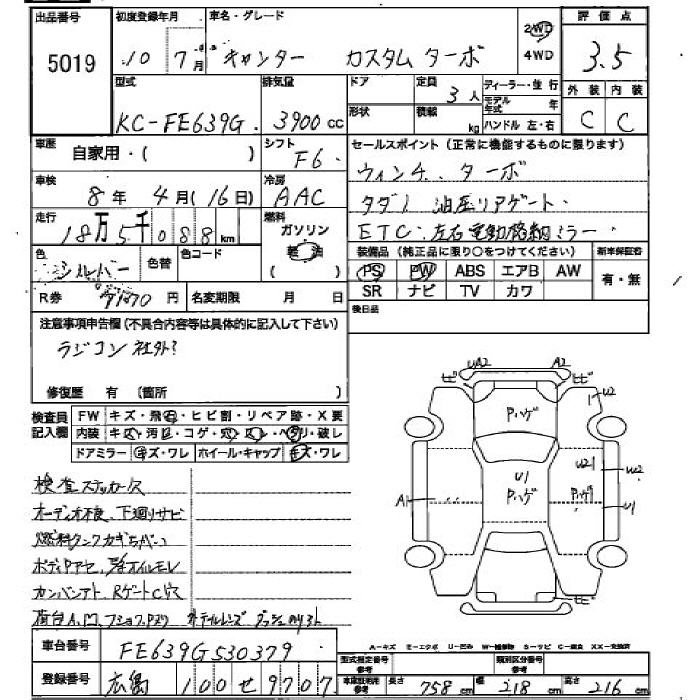 出品番号 初度登録年月 車名・グレード 評価点
5019 10年 7月 キャンター カスタム ターボ 2WD 4WD 3.5
型式 排気量 ドア 定員 3人 ディーラー・並行 外装 内装
KC-FE639G 3900cc 形状 積載 kg モデル年式 年 ハンドル 左・右 C C
車歴 自家用・( ) シフト F6 セールスポイント(正常に機能するものに限ります)
ウィンチ、ターボ
車検 8年 4月(16日) 冷房 AAC
タダノ 油圧リアゲート
走行 18万5千088km 燃料 ガソリン 軽油
ETC 左右電動格納ミラー
色 シルバー 色替 色コード 装備品(純正品に限り○をつけてください) 新車保証書
PS PW ABS エアB AW 有・無
R券 円 名変期限 月 日 SR ナビ TV カワ
注意事項申告欄(不具合内容等は具体的に記入して下さい) 後日品
ラジコン社外?
修復歴 有(箇所 )
検査員記入欄 FW キズ・飛石・ヒビ割・リペア跡・X要
内装 キズ・汚れ・コゲ・穴・スレ・ヘタリ・破レ
ドアミラー キズ・ワレ ホイール・キャップ キズ・ワレ
UA2 A2
ヒビ ヒビ U2
Pハゲ
U1 Pハゲ U21 Pハゲ UW2 U1
A1
検査ステッカー欠
オーディオ不良、下廻りサビ
燃料タンクカギちがい
車台番号 FE639G530379
登録番号 広島 100せ9707
A-キズ E-エクボ U-凹み W-補修跡 S-サビ C-腐食 XX-交換済
型式指定番号 参考 類別区分番号 参考
車検証記載 参考 長さ 758cm 幅 218cm 高さ 216cm